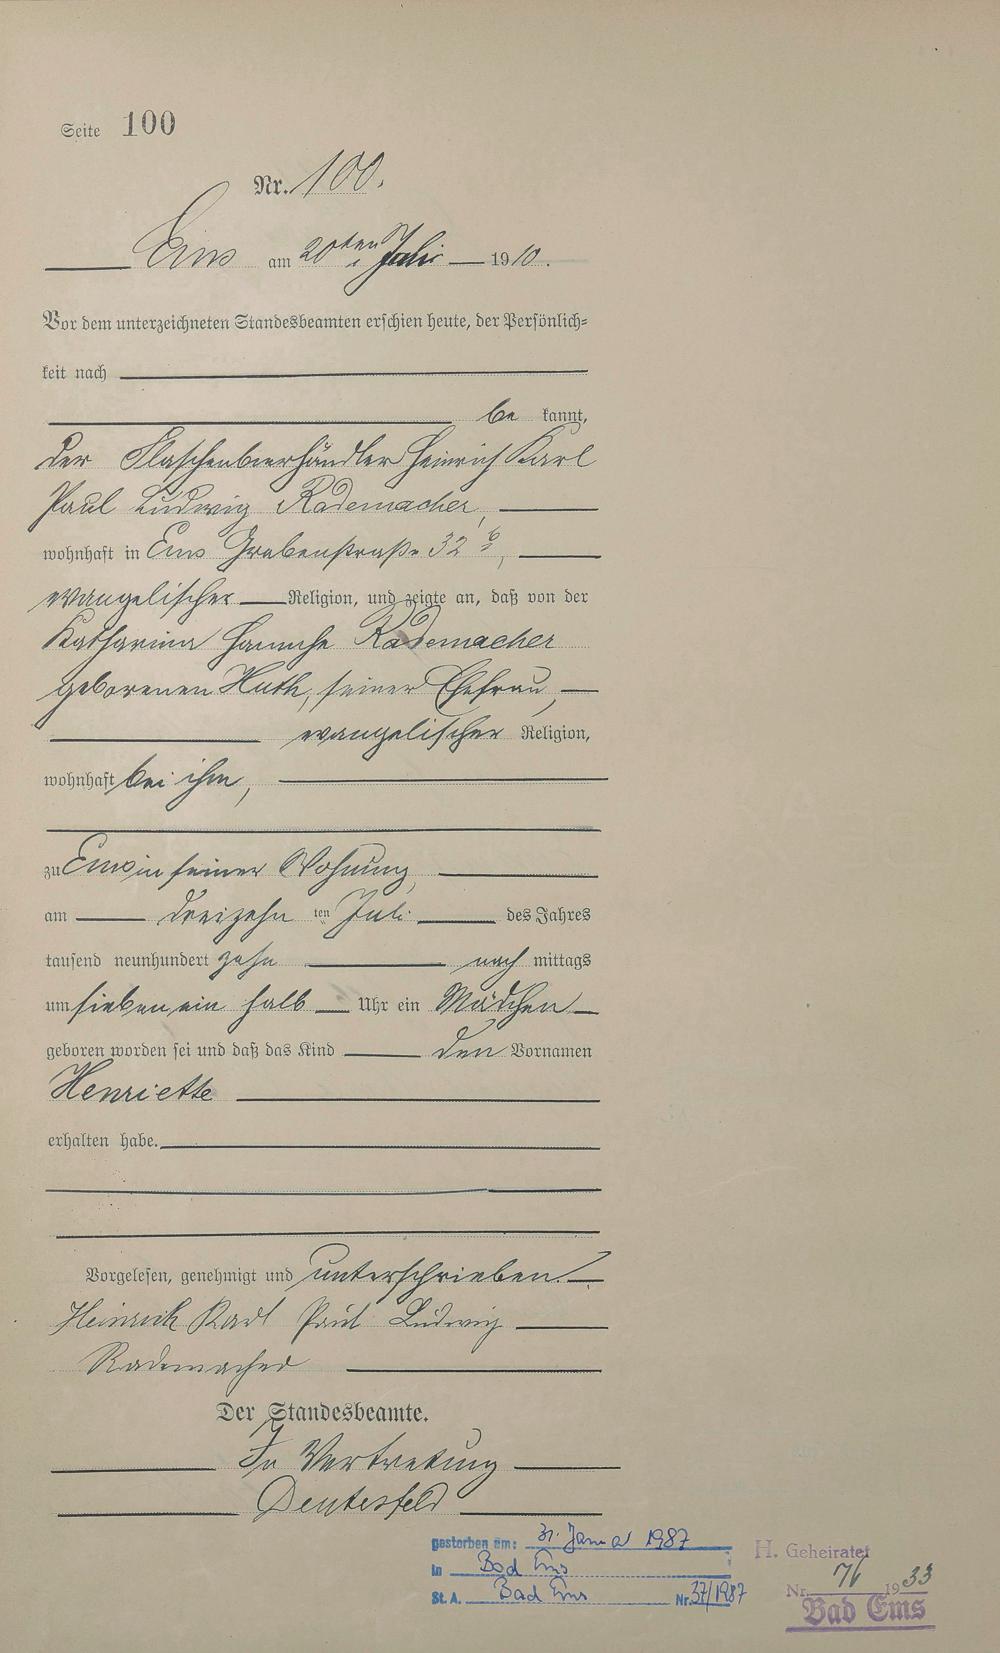 Seite 100
Nr. 100.
Ems am 20ten Juli 1910.
Vor dem unterzeichneten Standesbeamten erschien heute, der Persönlich-
keit nach
be kannt,
der Flaschenbierhändler Heinrich Karl
Paul Ludwig Rademacher,
wohnhaft in Ems Grabenstraße 32 b,
evangelischer Religion, und zeigte an, daß von der
Katharina Rademacher
geborenen Huth, seiner Ehefrau,
evangelischer Religion,
wohnhaft bei ihm,
zu Ems in seiner Wohnung,
am dreizehn ten Juli des Jahres
tausend neunhundert zehn nach mittags
um sieben ein halb Uhr ein Mädchen
geboren worden sei und daß das Kind den Vornamen
Henriette
erhalten habe.
Vorgelesen, genehmigt und unterschrieben.
Heinrich Karl Paul Ludwig
Rademacher
Der Standesbeamte.
In Vertretung
gestorben am: 31. Januar 1987
in Bad Ems
St. A. Bad Ems Nr. 37/1987
H. Geheiratet
Nr. 76 1933
Bad Ems